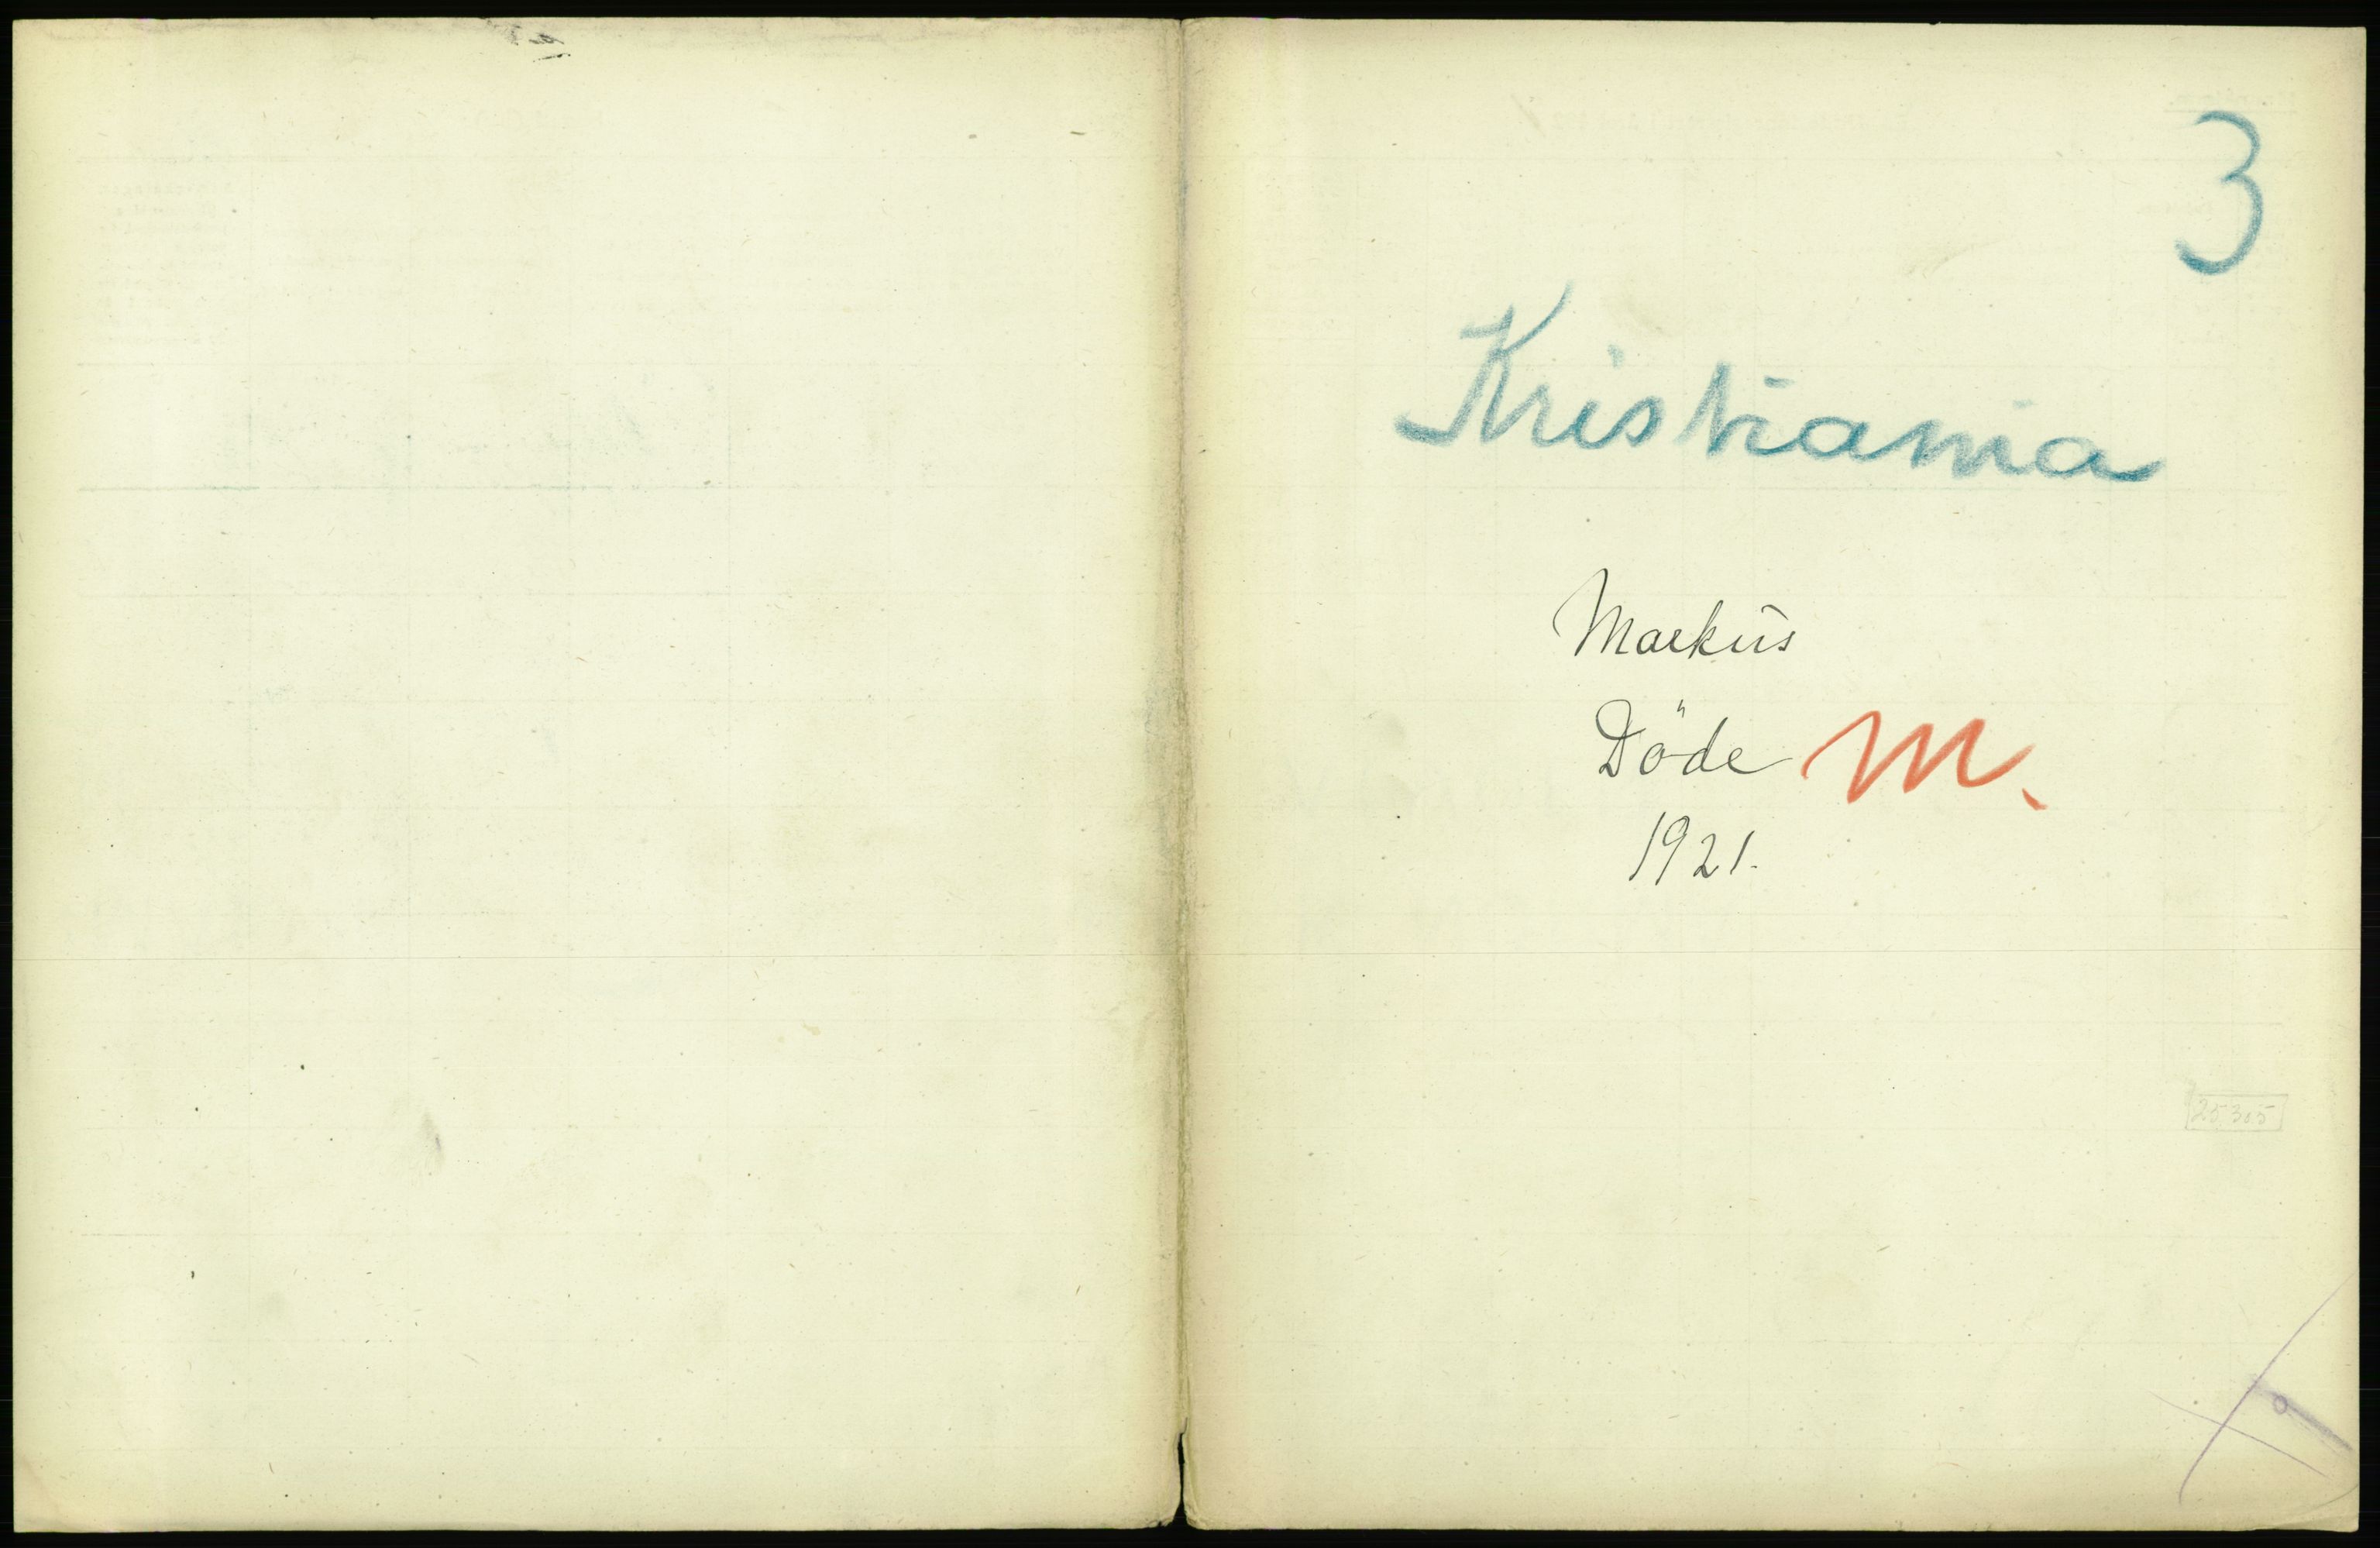 3
Kristiania
Markus
Döde M.
1921.
25305